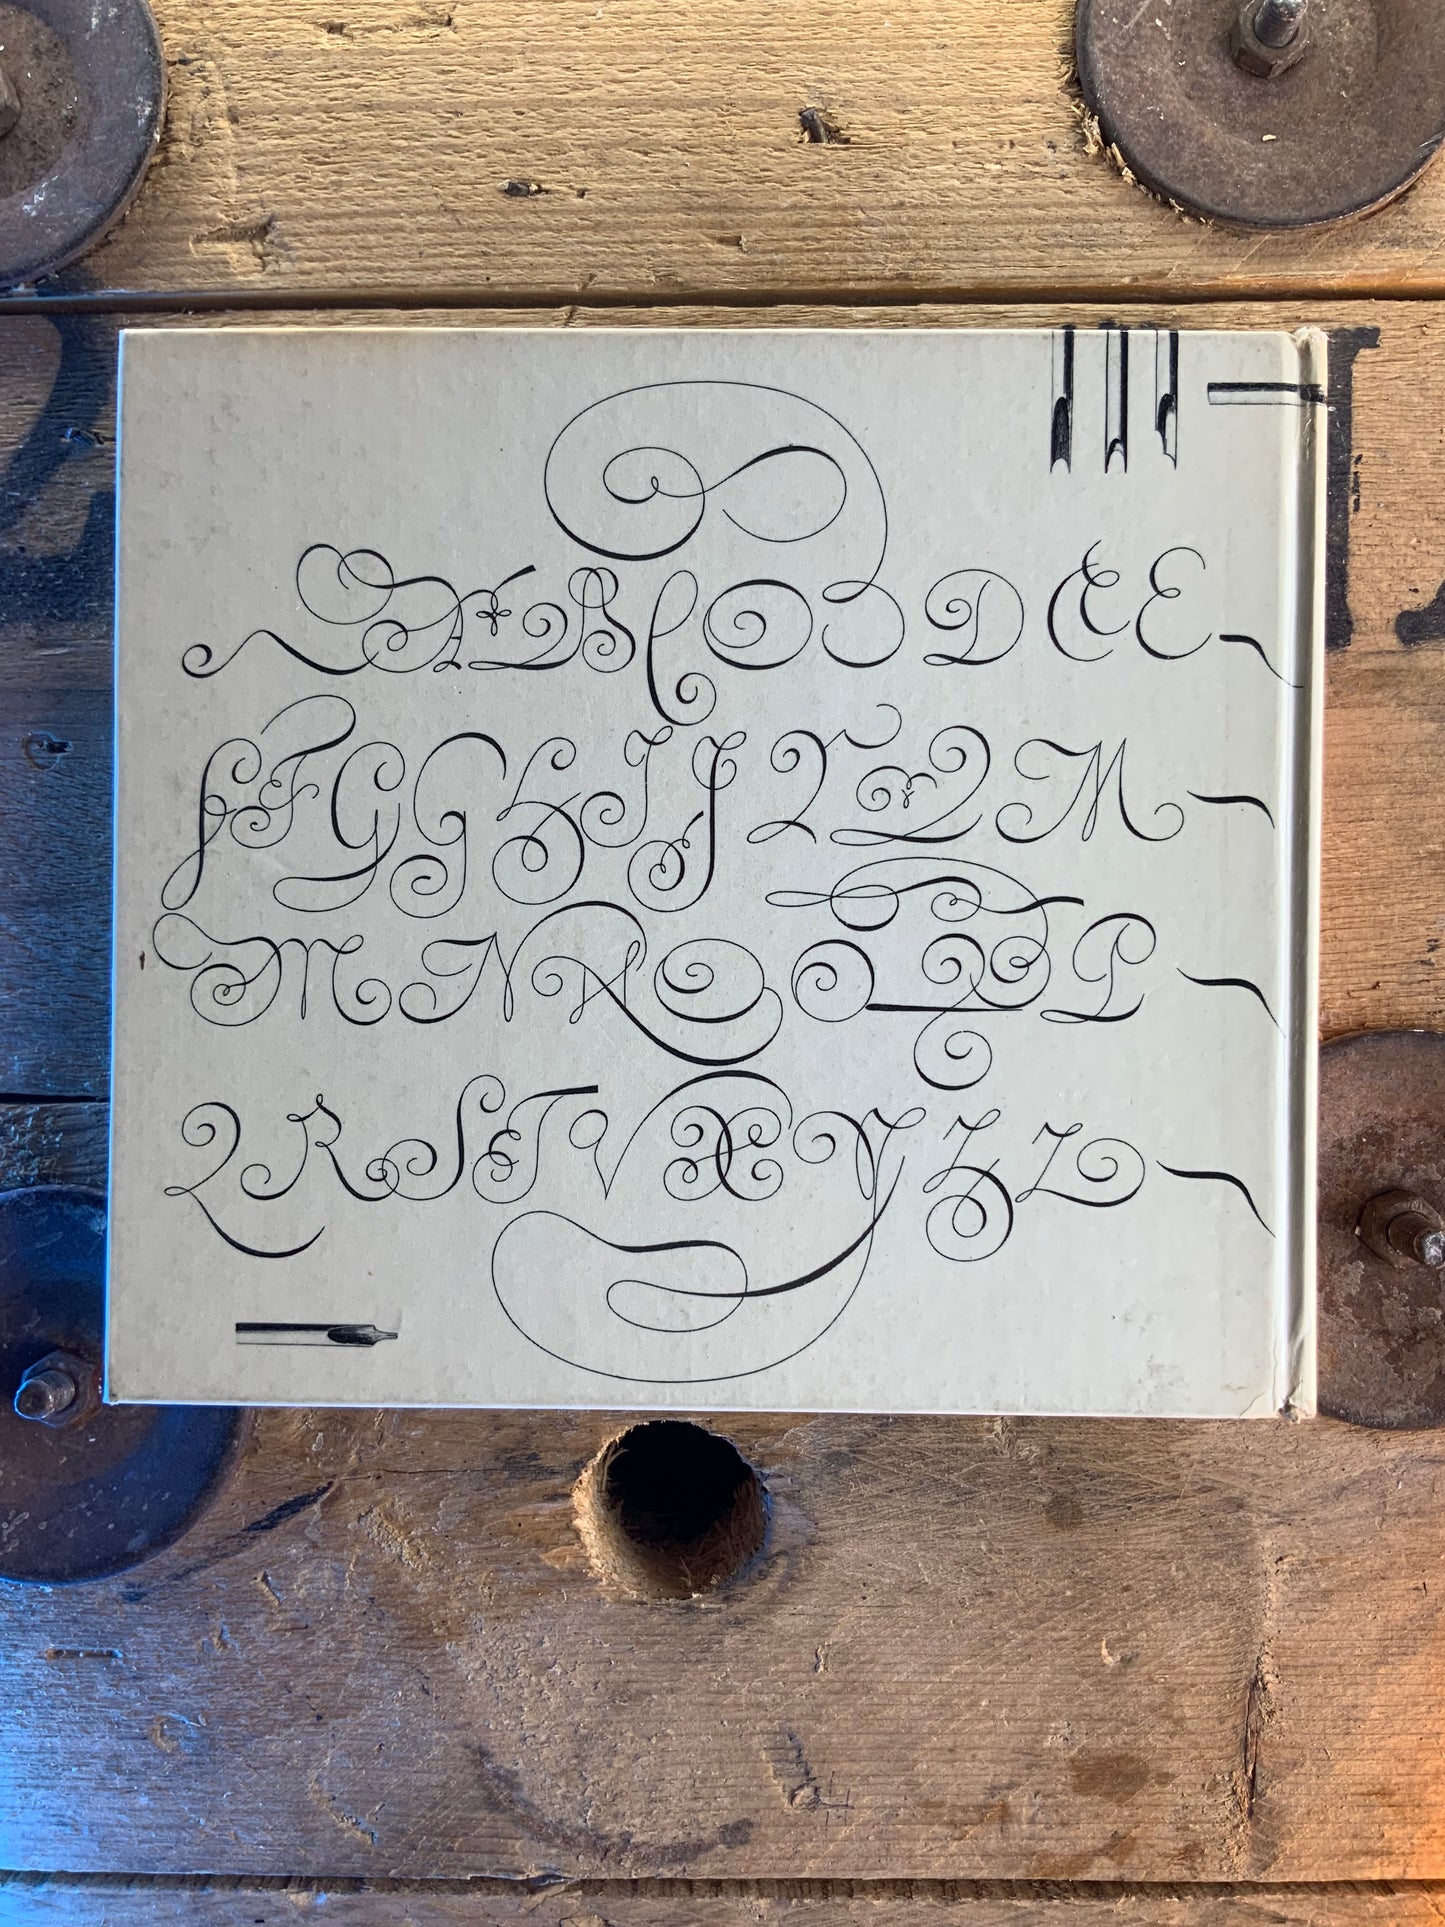 A B C D D E E
F F G G H I J L L M
M N N O O P P
Q R S T V X Y Z Z